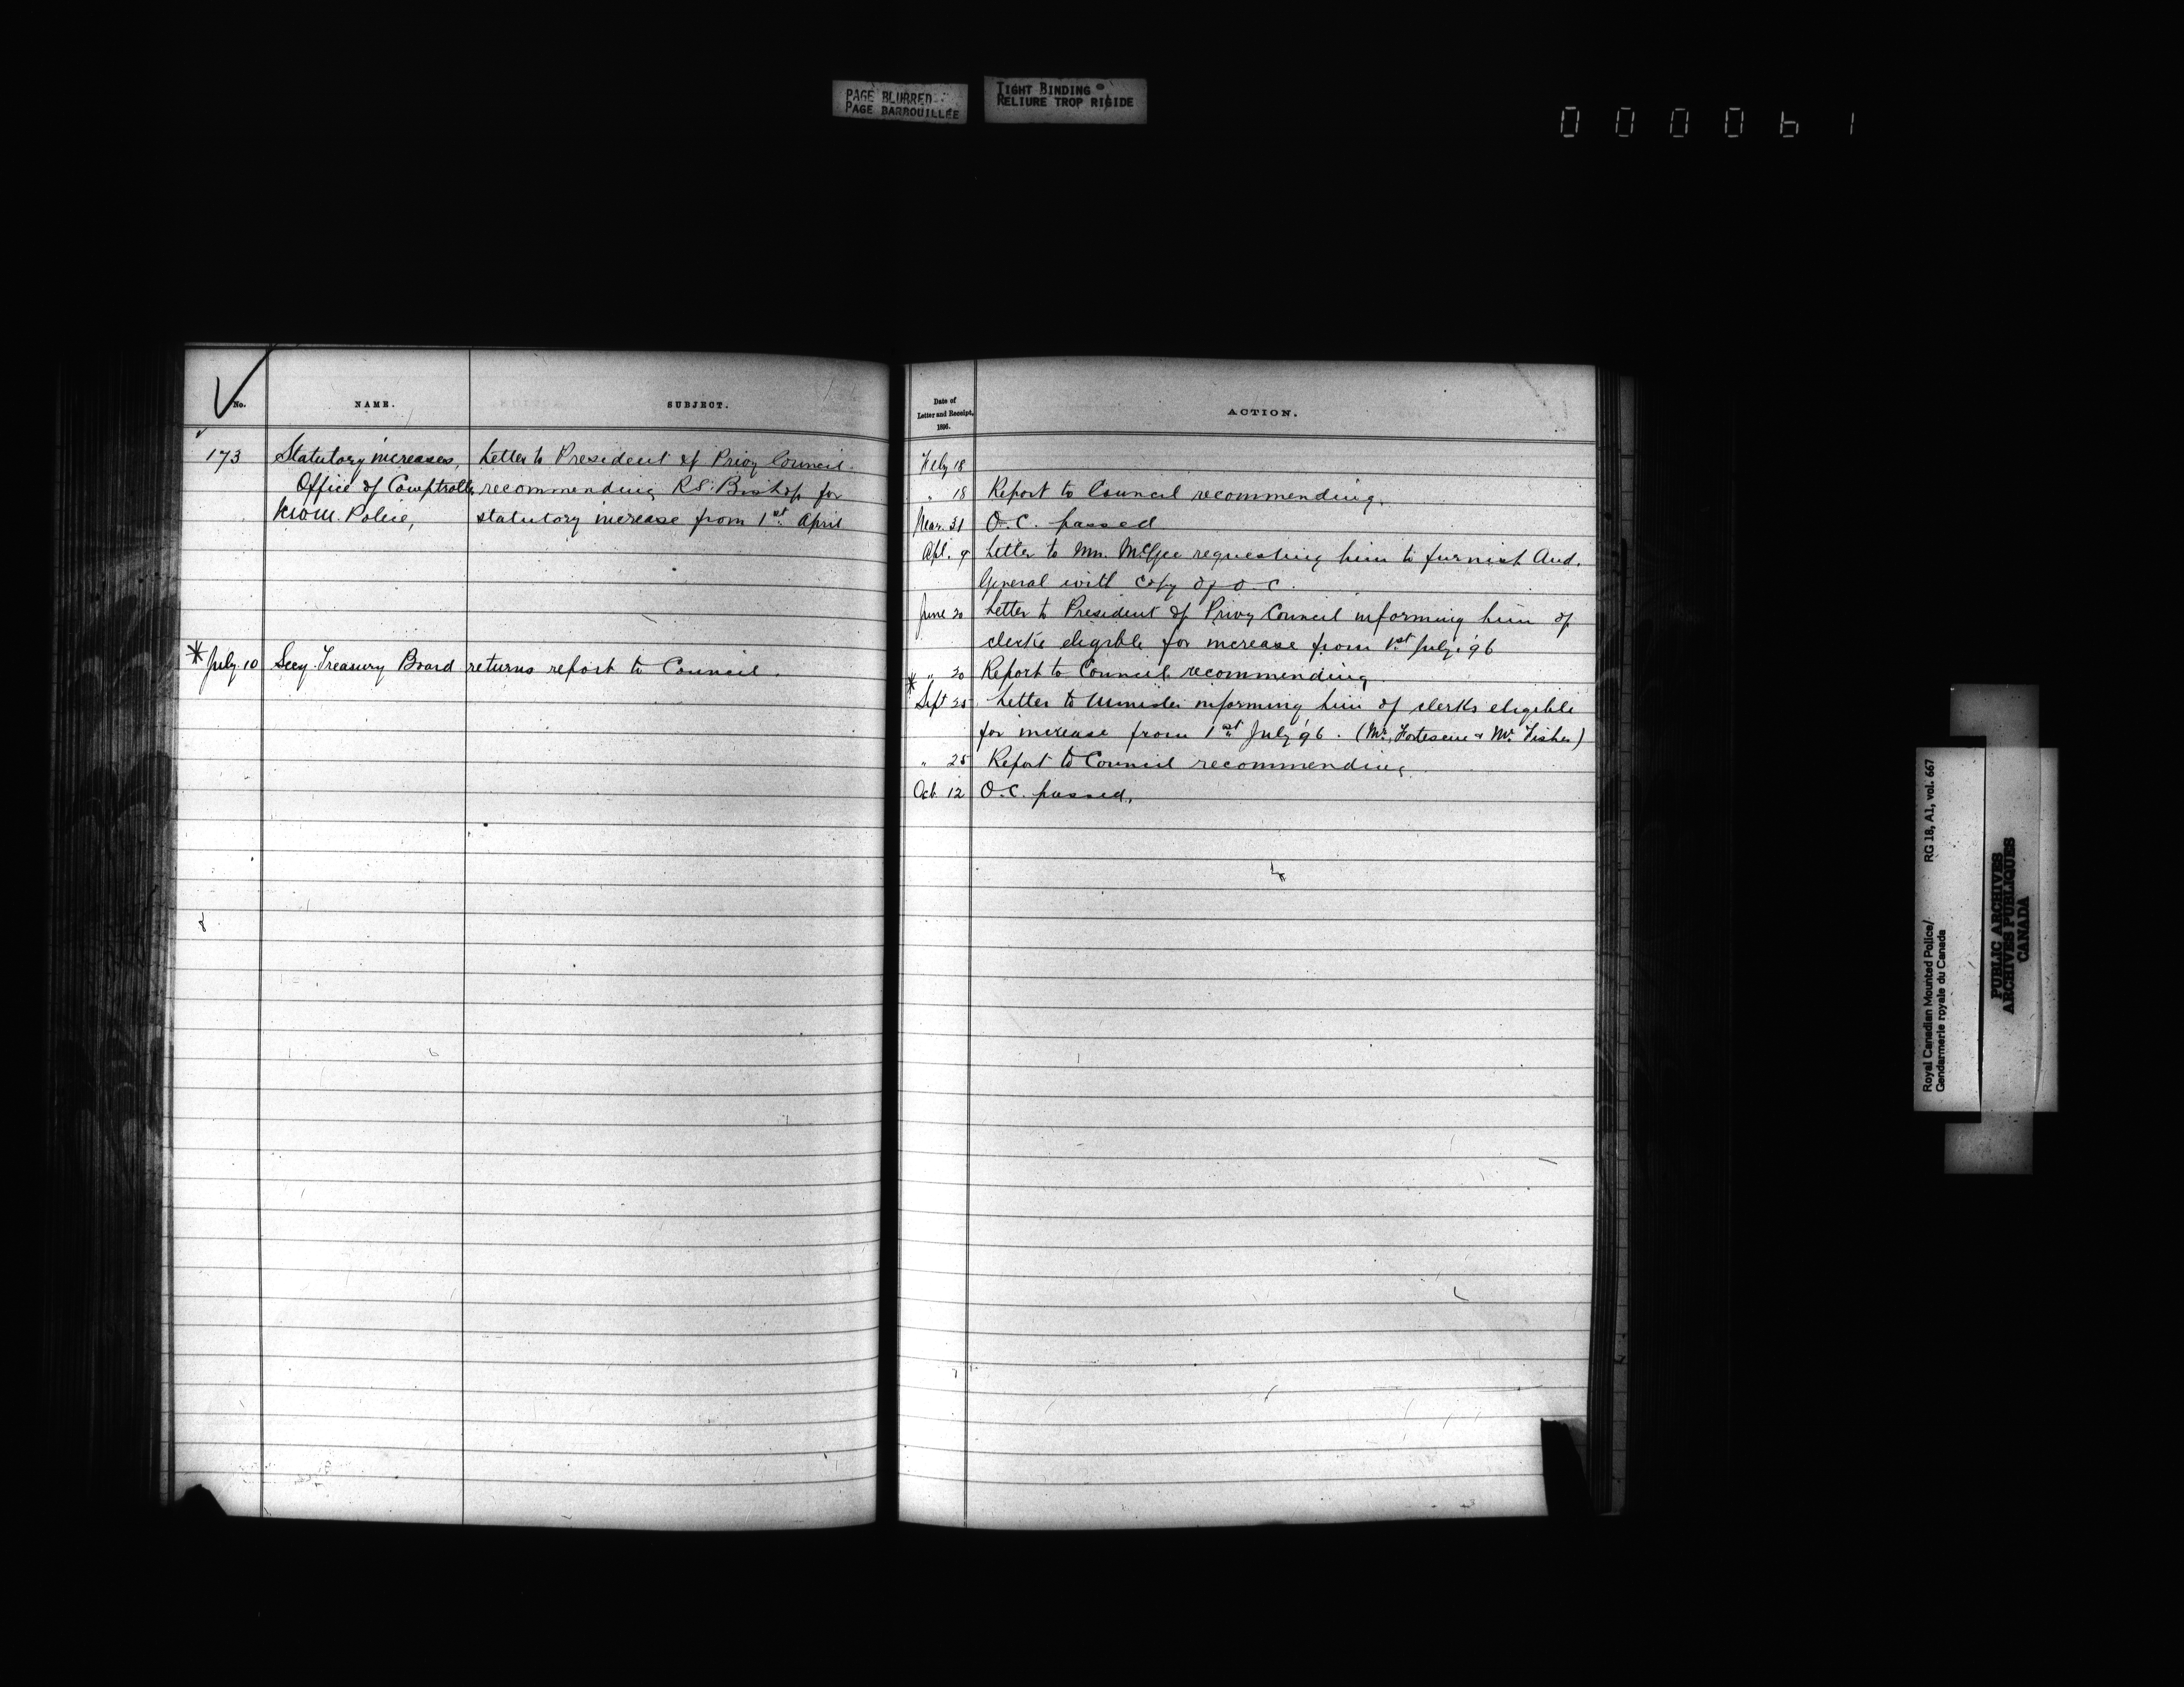 PAGE BLURRED
PAGE BARBOUILLÉE
TIGHT BINDING
RELIURE TROP RIGIDE
0 0 0 0 6 1
No.
NAME.
SUBJECT.
173
Statutory increases, Letter to President of Privy Council
Office of Comptroller recommending R.S. Bishop for
N.W.M. Police, statutory increase from 1st April
* July 10 Secy. Treasury Board returns report to Council.
Date of
Letter and Receipt,
1896.
ACTION.
Feby 18
" 18 Report to Council recommending.
Mar. 31 O.C. passed
Apl. 9 Letter to Mr. McGee requesting him to furnish Aud.
General with copy of O.C.
June 20 Letter to President of Privy Council informing him of
clerks eligible for increase from 1st July '96
" 20 Report to Council recommending
*
Sept 25 Letter to Minister informing him of clerks eligible
for increase from 1st July '96. (Mr. Fortescue & Mr. Fisher)
" 25 Report to Council recommending
Oct 12 O.C. passed.
Royal Canadian Mounted Police/ RG 18, A1, vol. 667
Gendarmerie royale du Canada
PUBLIC ARCHIVES
ARCHIVES PUBLIQUES
CANADA